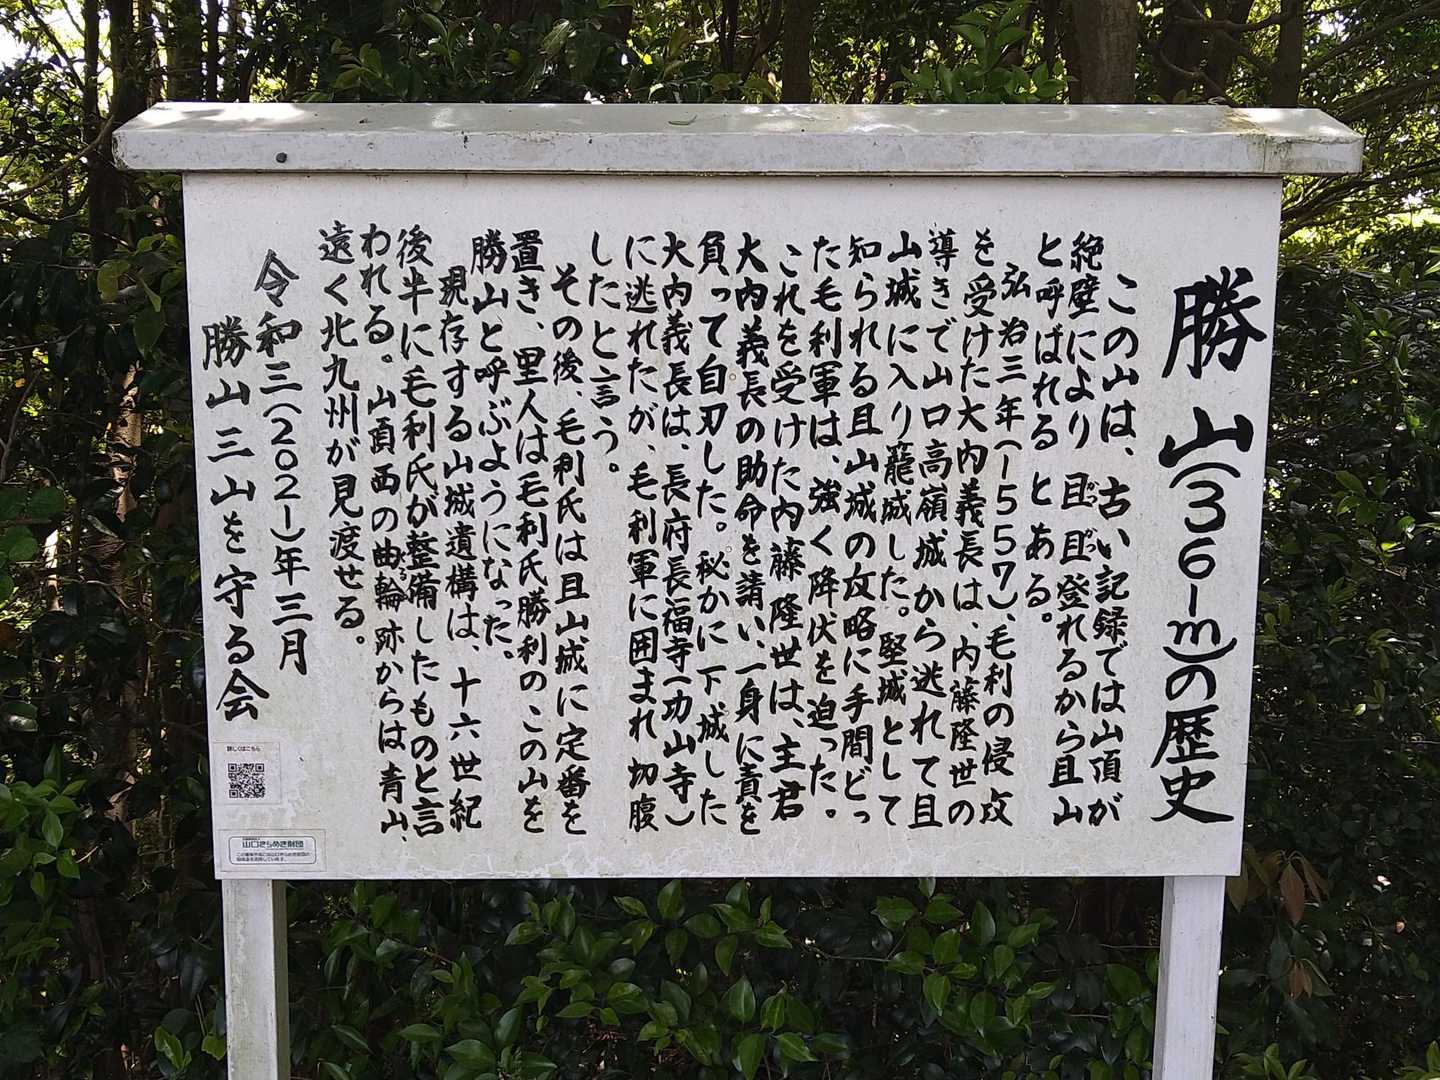 勝山(361m)の歴史
この山は、古い記録では山頂が
絶壁により 且且登れるから且山
と呼ばれる とある。
弘治三年(1557)、毛利の侵攻
を受けた大内義長は、内藤隆世の
導きで山口高嶺城から逃れて且
山城に入り籠城した。堅城として
知られる且山城の攻略に手間どっ
た毛利軍は、強く降伏を迫った。
これを受けた内藤隆世は、主君
大内義長の助命を請い、一身に責を
負って自刃した。秘かに下城した
大内義長は、長府長福寺(功山寺)
に逃れたが、毛利軍に囲まれ切腹
したと言う。
その後、毛利氏は且山城に定番を
置き、里人は毛利氏勝利のこの山を
勝山と呼ぶようになった。
現存する山城遺構は、十六世紀
後半に毛利氏が整備したものと言
われる。山頂西の曲輪跡からは青山、
遠く北九州が見渡せる。
令和三(2021)年三月
勝山三山を守る会
詳しくはこちら
山口きらめき財団